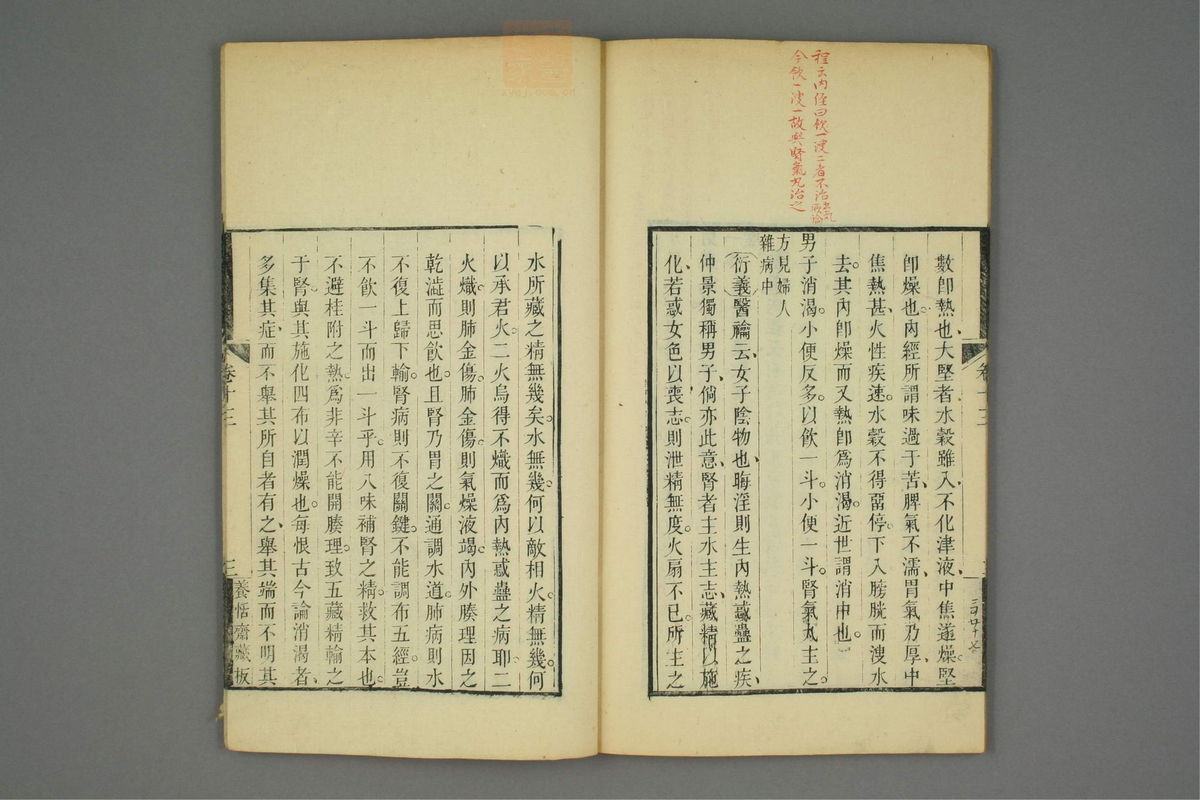 程云內經曰飲一溲二者不治
今飲一溲一故與腎氣丸治之
數卽熱也大堅者水穀雖入不化津液中焦遂燥堅
卽燥也內經所謂味過于苦脾氣不濡胃氣乃厚中
焦熱甚火性疾速水穀不得畱停下入膀胱而溲水
去其內卽燥而又熱卽爲消渴近世謂消中也
男子消渴小便反多以飲一斗小便一斗腎氣丸主之
方見婦人
雜病中
衍義醫論云女子陰物也晦淫則生內熱惑蠱之疾
仲景獨稱男子倘亦此意腎者主水主志藏精以施
化若惑女色以喪志則泄精無度火扇不已所主之
卷十三
水所藏之精無幾矣水無幾何以敵相火精無幾何
以承君火二火烏得不熾而爲內熱惑蠱之病耶二
火熾則肺金傷肺金傷則氣燥液竭內外腠理因之
乾澁而思飲也且腎乃胃之關通調水道肺病則水
不復上歸下輸腎病則不復關鍵不能調布五經豈
不飲一斗而出一斗乎用八味補腎之精救其本也
不避桂附之熱爲非辛不能開腠理致五藏精輸之
于腎與其施化四布以潤燥也每恨古今論消渴者
多集其症而不舉其所自者有之舉其端而不明其
卷十三
三
養恬齋藏板